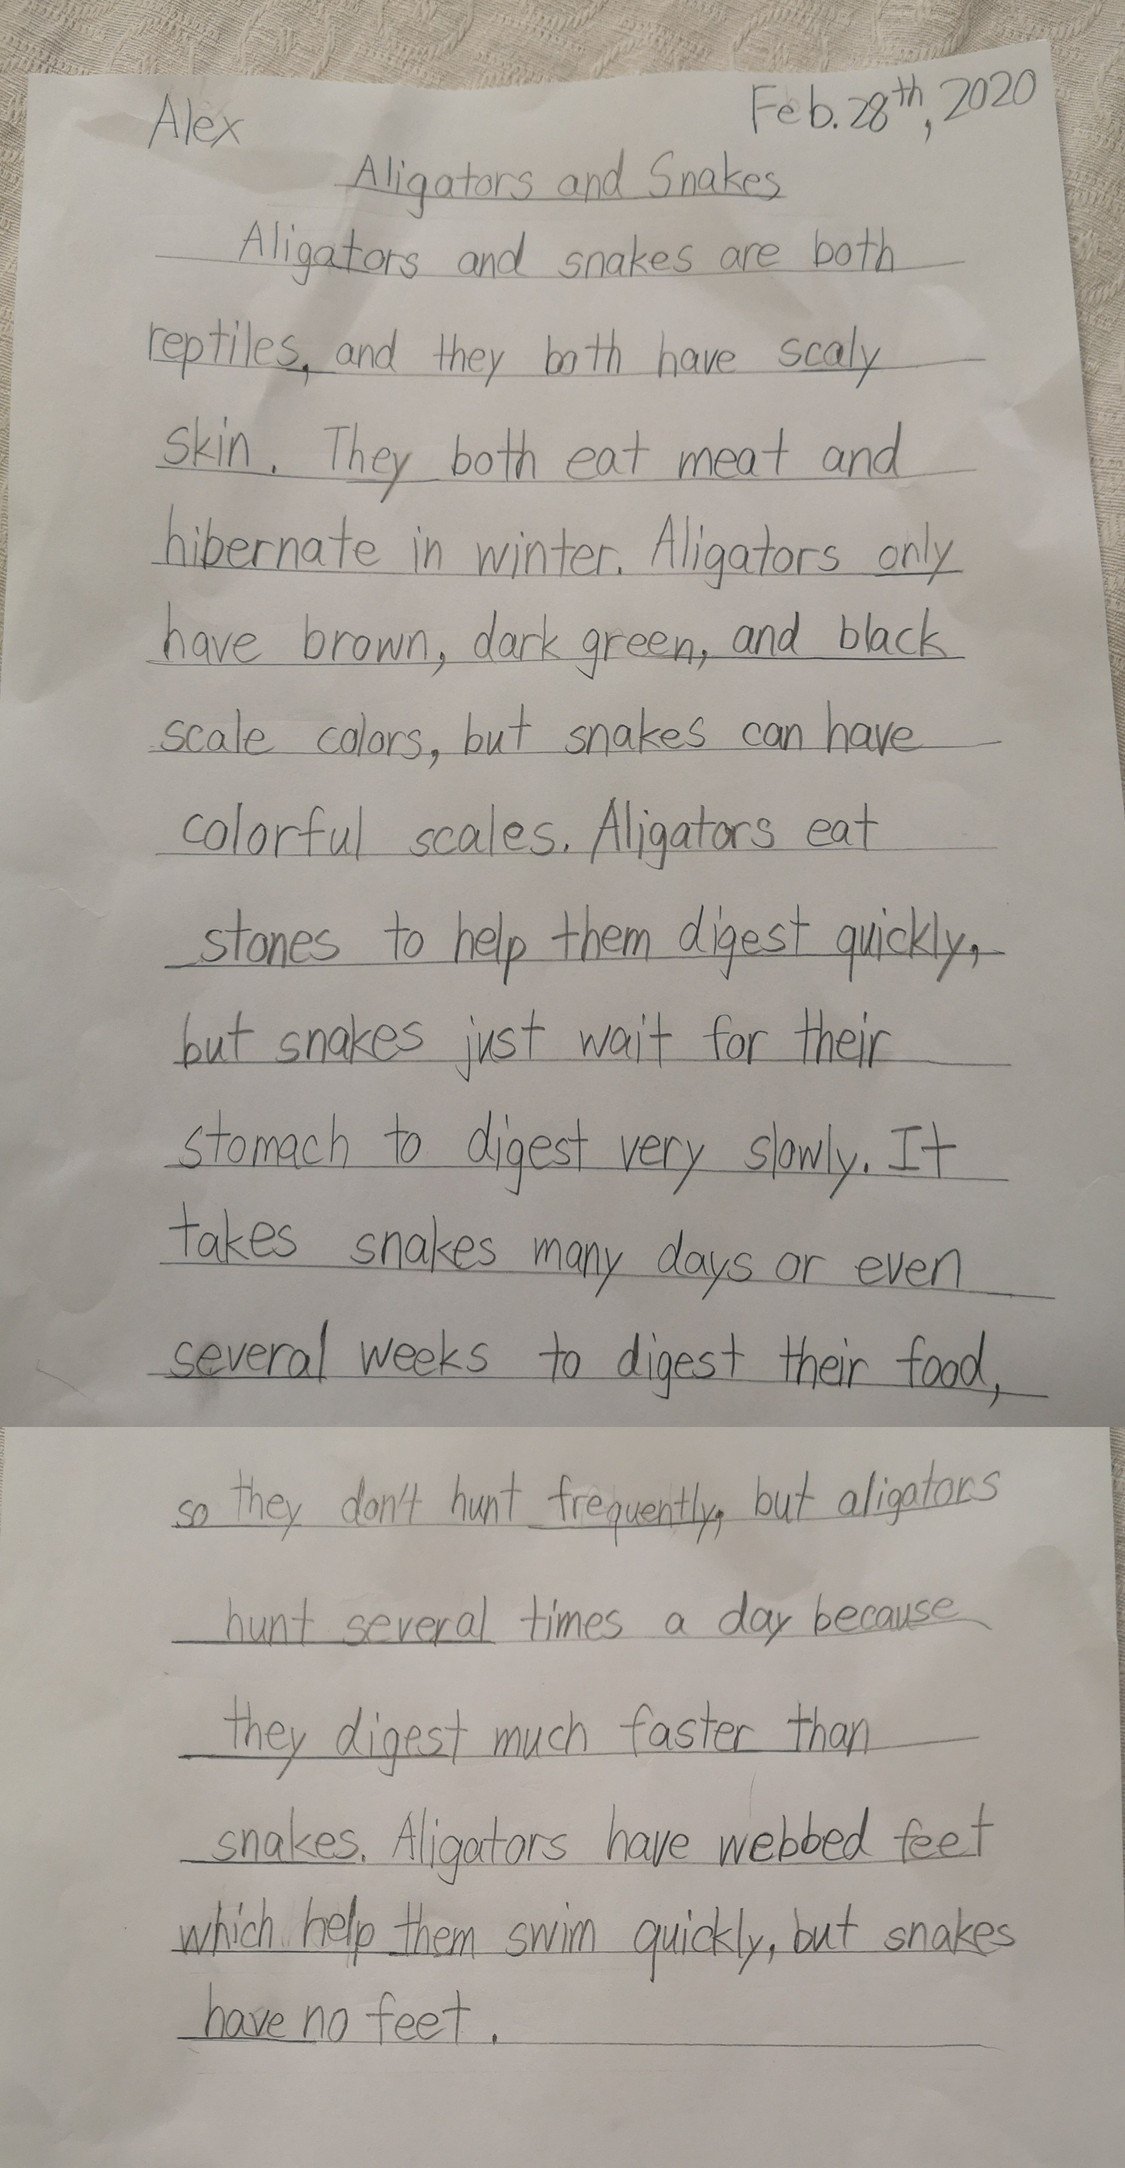 Alex
Feb. 28th, 2020
Aligators and Snakes
Aligators and snakes are both
reptiles, and they both have scaly
skin. They both eat meat and
hibernate in winter. Aligators only
have brown, dark green, and black
scale colors, but snakes can have
colorful scales. Aligators eat
stones to help them digest quickly,
but snakes just wait for their
stomach to digest very slowly. It
takes snakes many days or even
several weeks to digest their food,
so they don't hunt frequently, but aligators
hunt several times a day because
they digest much faster than
snakes. Aligators have webbed feet
which help them swim quickly, but snakes
have no feet.